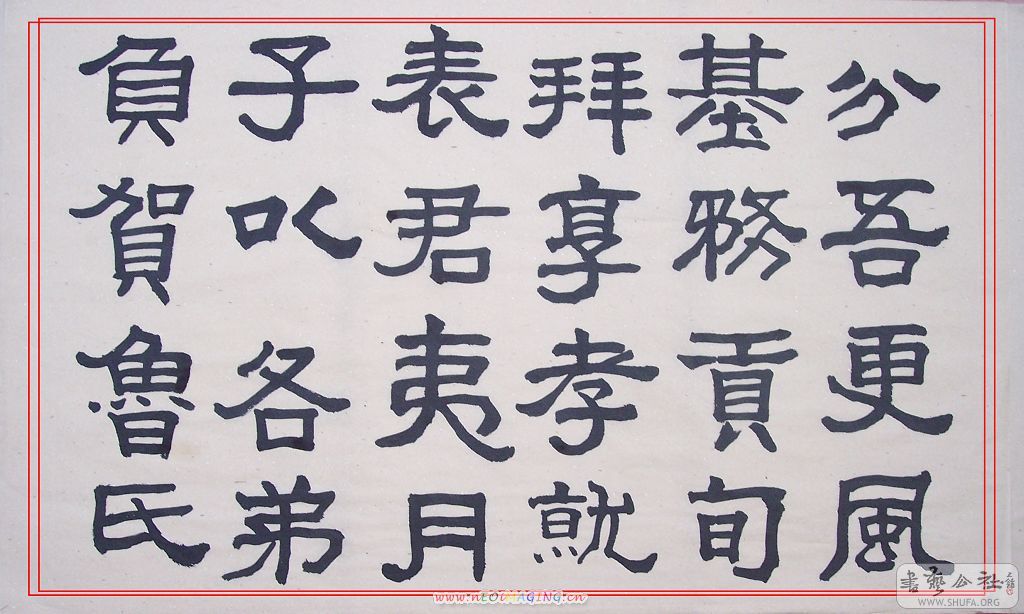 分吾更風
基務貢旬
拜享孝就
表君夷月
子以各弟
負賀魯氏
www.nEOiMAGING.cn
書藝公社
WWW.SHUFA.ORG